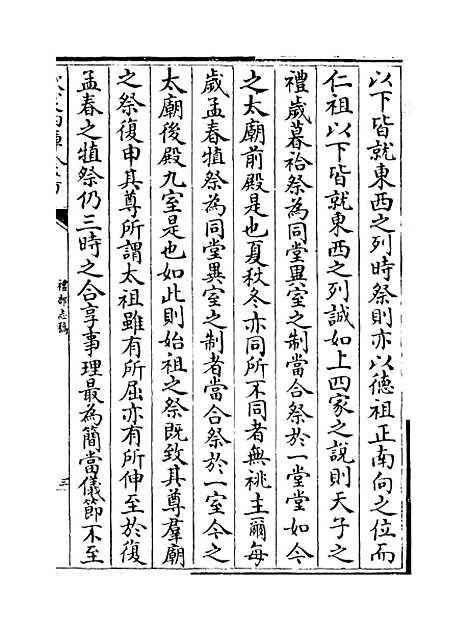 以下皆就東西之列時祭則亦以德祖正南向之位而
仁祖以下皆就東西之列誠如上四家之說則天子之
禮歲暮祫祭為同堂異室之制當合祭於一堂堂如今
之太廟前殿是也夏秋冬亦同所不同者無祧主爾每
歲孟春犆祭為同堂異室之制者當合祭於一室今之
太廟後殿九室是也如此則始祖之祭既致其尊羣廟
之祭復申其尊所謂太祖雖有所屈亦有所伸至於復
孟春之犆祭仍三時之合享事理最為簡當儀節不至
禮部志稿
三